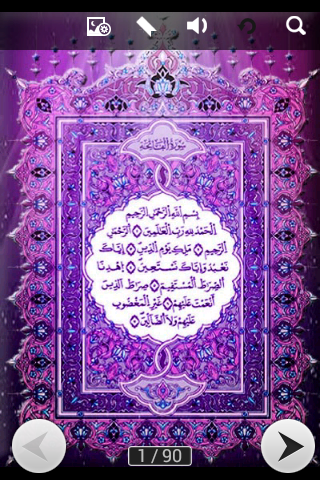 سورة الفاتحة
بسم الله الرحمن الرحيم
الحمد لله رب العالمين الرحمن
الرحيم ملك يوم الدين إياك
نعبد وإياك نستعين اهدنا
الصراط المستقيم صراط الذين
أنعمت عليهم غير المغضوب
عليهم ولا الضالين
1 / 90